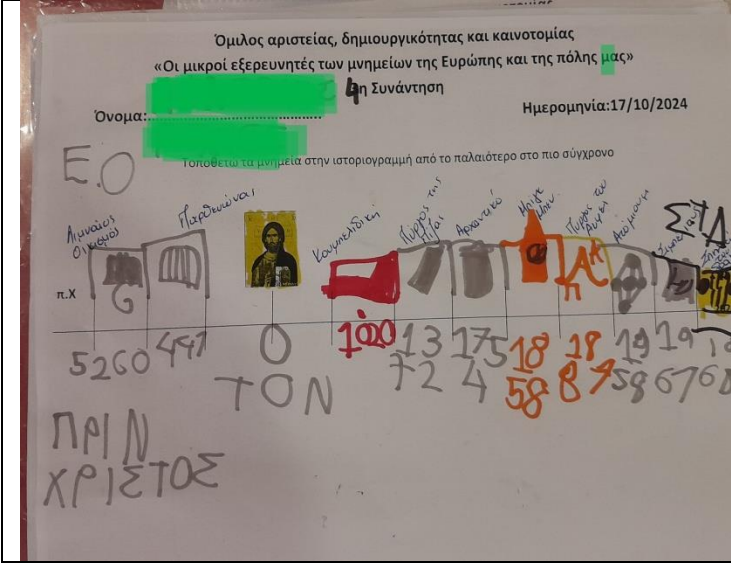 Όμιλος αριστείας, δημιουργικότητας και καινοτομίας
«Οι μικροί εξερευνητές των μνημείων της Ευρώπης και της πόλης μας»
4η Συνάντηση
Όνομα:
Ημερομηνία:17/10/2024
Ε.Ο
Τοποθετώ τα μνημεία στην ιστοριογραμμή από το παλαιότερο στο πιο σύγχρονο
Λιμναίος Οικισμός
Παρθενώνας
Κουμπελίδικη
Πύργος της Πίζας
Αρχοντικό
Μπιγκ Μπεν
Πύργος του Άιφελ
Ατόμιουμ
π.Χ
5260 447 0 1020 1372 1754 1858 1887 1958 1967
ΤΟΝ
ΠΡΙΝ
ΧΡΙΣΤΟΣ